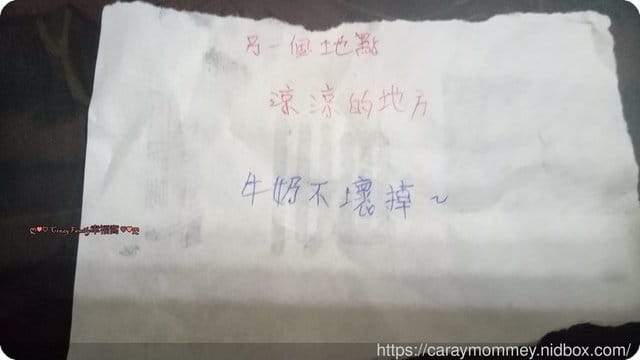 另一個地點
涼涼的地方
牛奶不壞掉~
Crazy Family幸福窩
https://caraymommey.nidbox.com/